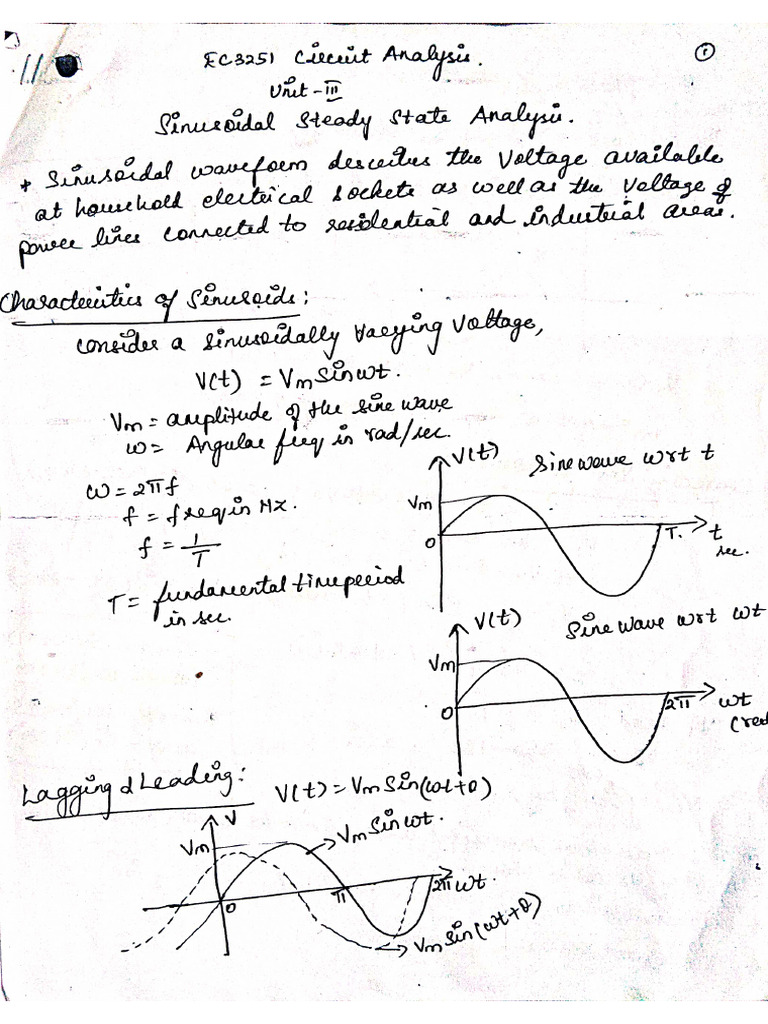 EC3251 Circuit Analysis.
①
Unit - III
Sinusoidal Steady State Analysis.
* Sinusoidal waveform describes the Voltage available
at household electrical sockets as well as the Voltage of
power lines connected to residential and industrial areas.
Characteristics of Sinusoids:
Consider a sinusoidally varying Voltage,
V(t) = Vm Sin ωt.
Vm = amplitude of the sine wave
ω = Angular freq in rad/sec.
ω = 2πf
f = freq in Hz.
f = 1/T
T = fundamental time period
in sec.
V(t)
Sine wave wrt t
Vm
0
T.
t
sec.
V(t)
Sine wave wrt ωt
Vm
0
2π
ωt
(rad
Lagging & Leading:
V(t) = Vm Sin(ωt+θ)
V
Vm
Vm Sin ωt.
0
π
2π
ωt.
Vm Sin(ωt+θ)